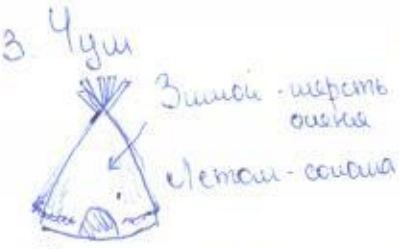 3. Чум
Зимой - шерсть
оленя
Летом - солома